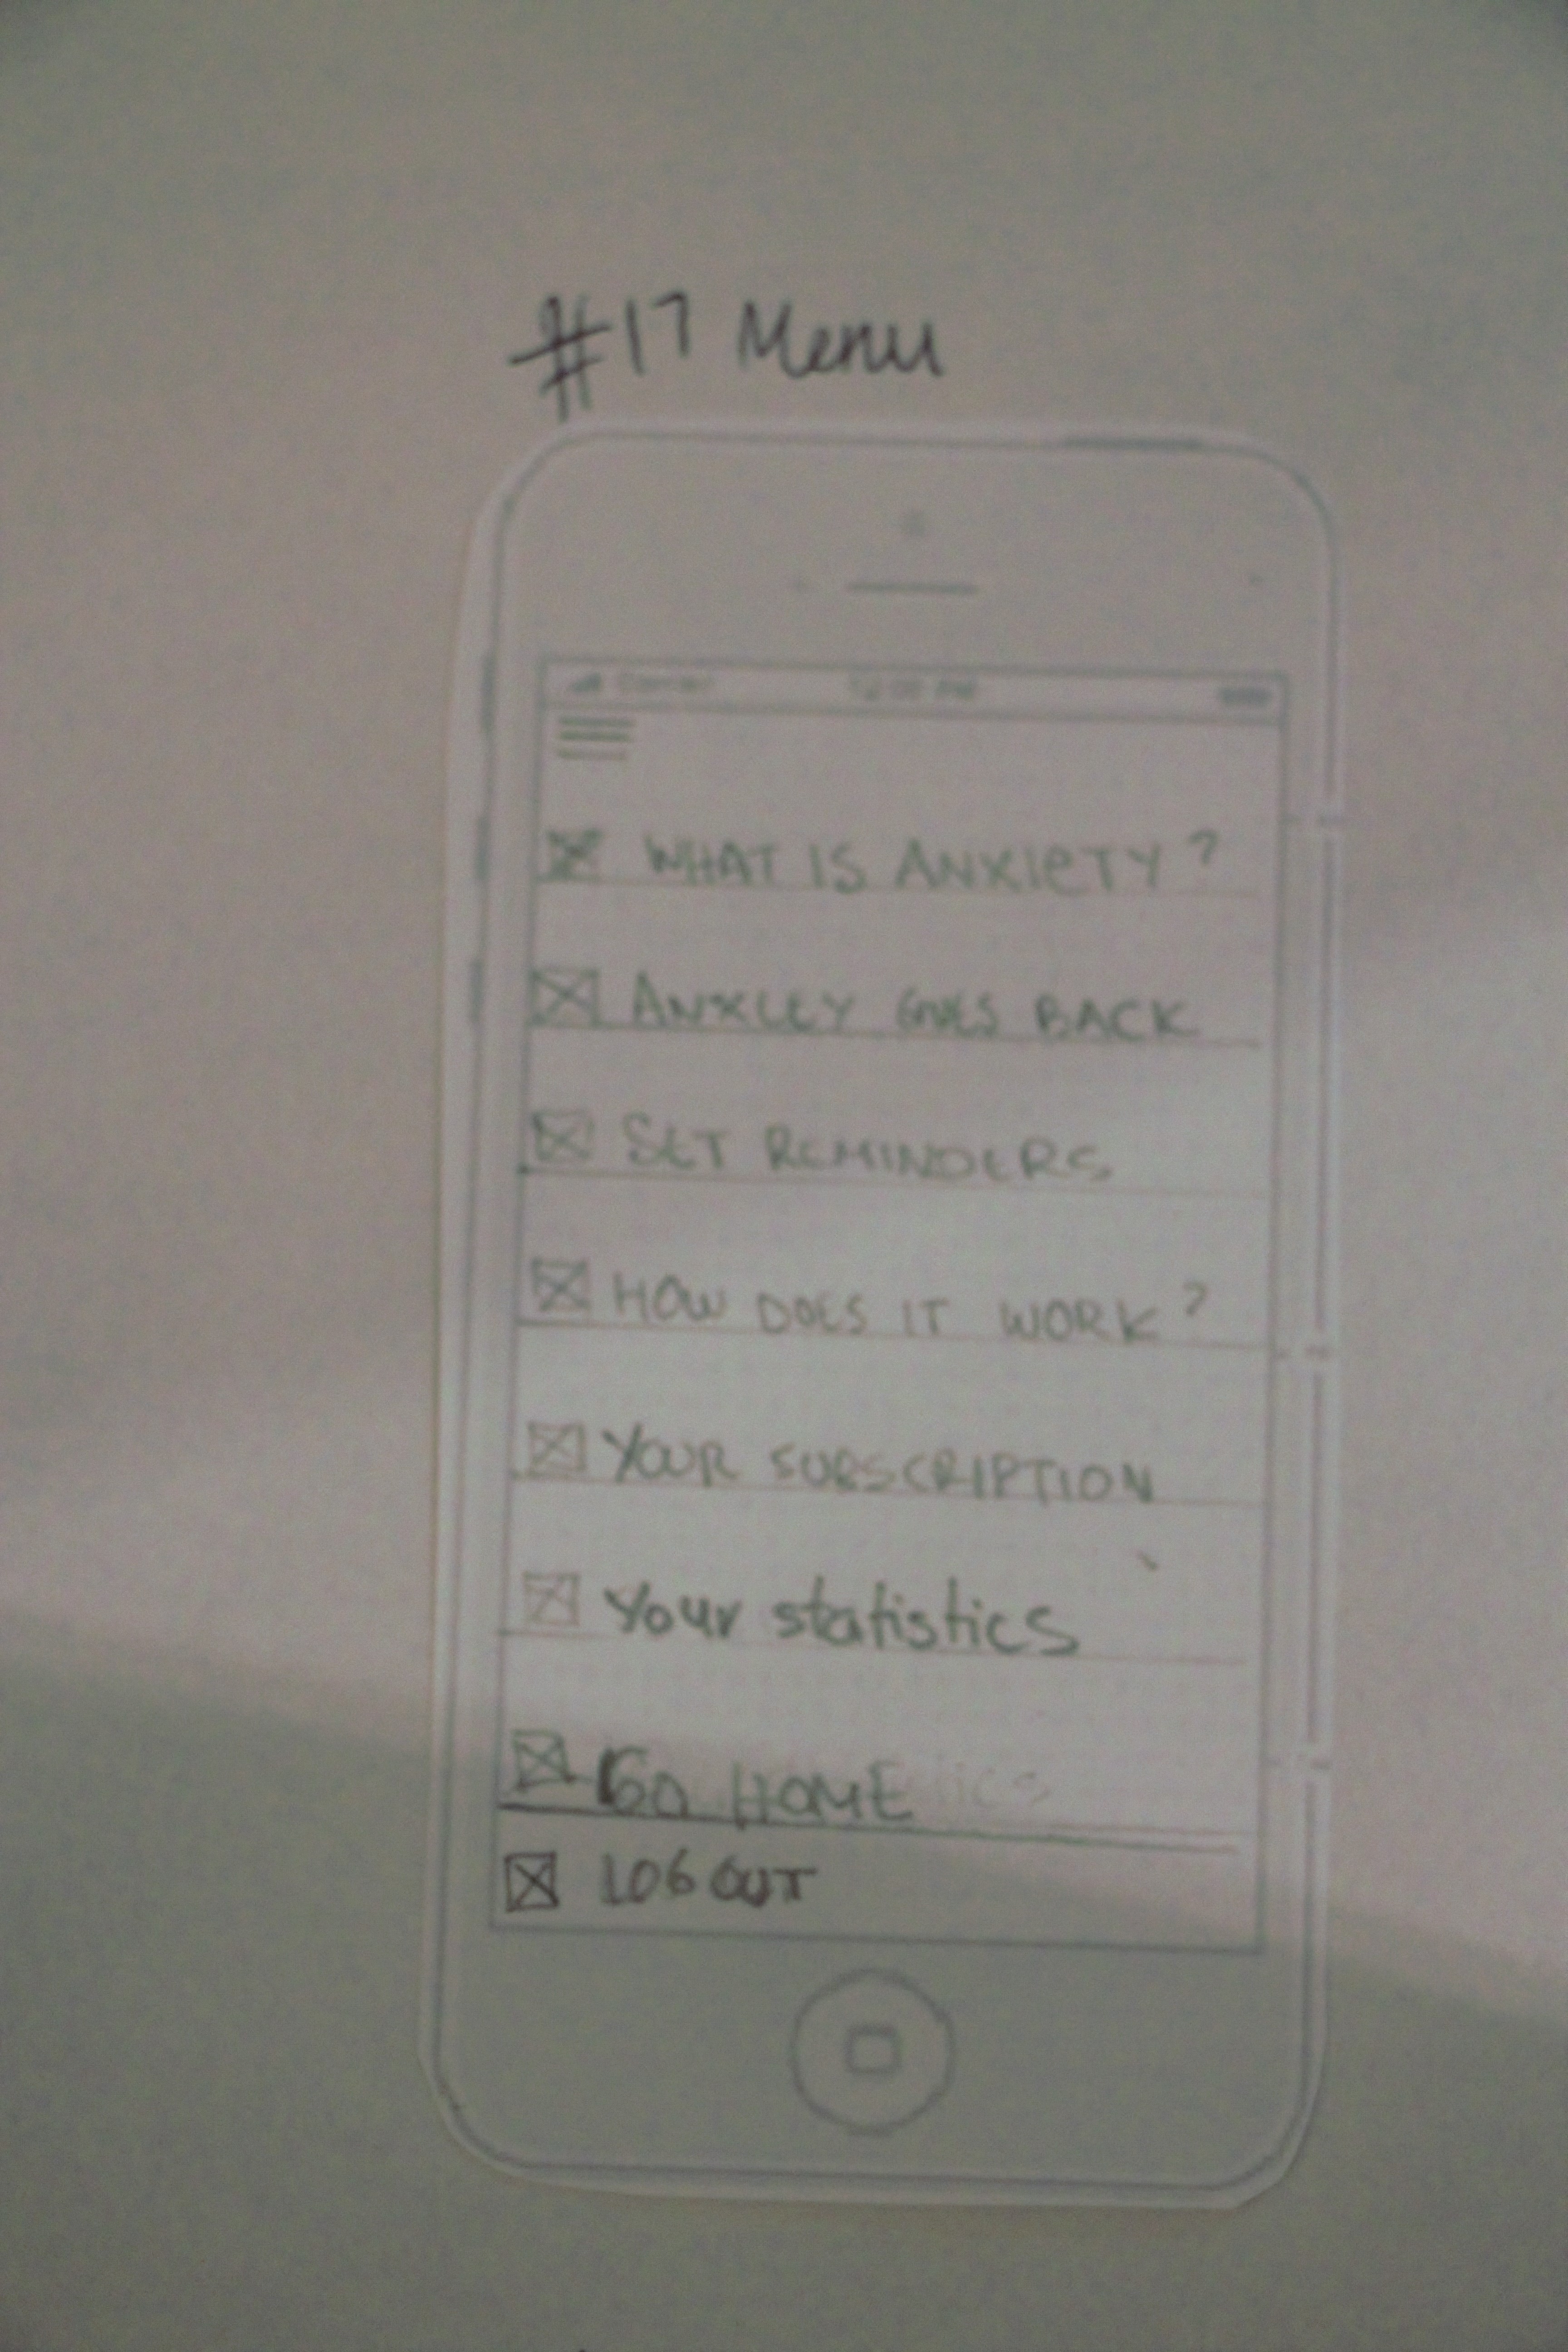 #17 Menu
Carrier 12:00 PM
WHAT IS ANXIETY?
ANXLEY GOES BACK
SET REMINDERS
HOW DOES IT WORK?
YOUR SUBSCRIPTION
Your statistics
GO HOME
LOG OUT